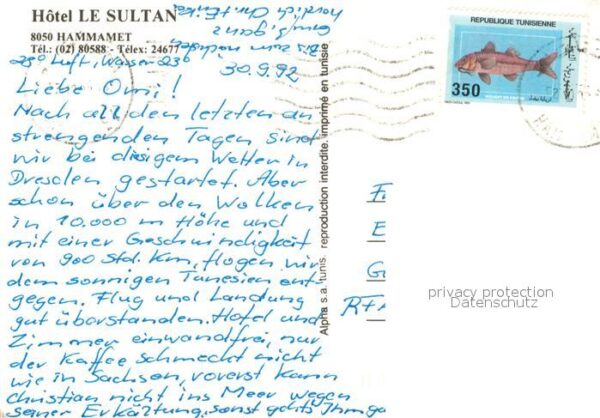 Hôtel LE SULTAN
8050 HAMMAMET
Tél.: (02) 80588 - Télex: 24677
25° Luft, Wasser 23°
30.9.92
Liebe Omi!
Nach all den letzten an
strengenden Tagen sind
wir bei diesigem Wetter in
Dresden gestartet. Aber
schon über den Wolken
in 10.000 m Höhe und
mit einer Geschwindigkeit
von 900 Std. Km, flogen wir
dem sonnigen Tunesien ent
gegen. Flug und Landung
gut überstanden. Hotel und
Zimmer einwandfrei, nur
der Kaffee schmeckt nicht
wie in Sachsen, vorerst kann
christian nicht ins Meer wegen
seiner Erkältung, sonst gehts ihm
Alpha s.a. tunis. reproduction interdite. imprimé en tunisie
REPUBLIQUE TUNISIENNE
350
F
E
G
privacy protection
Datenschutz